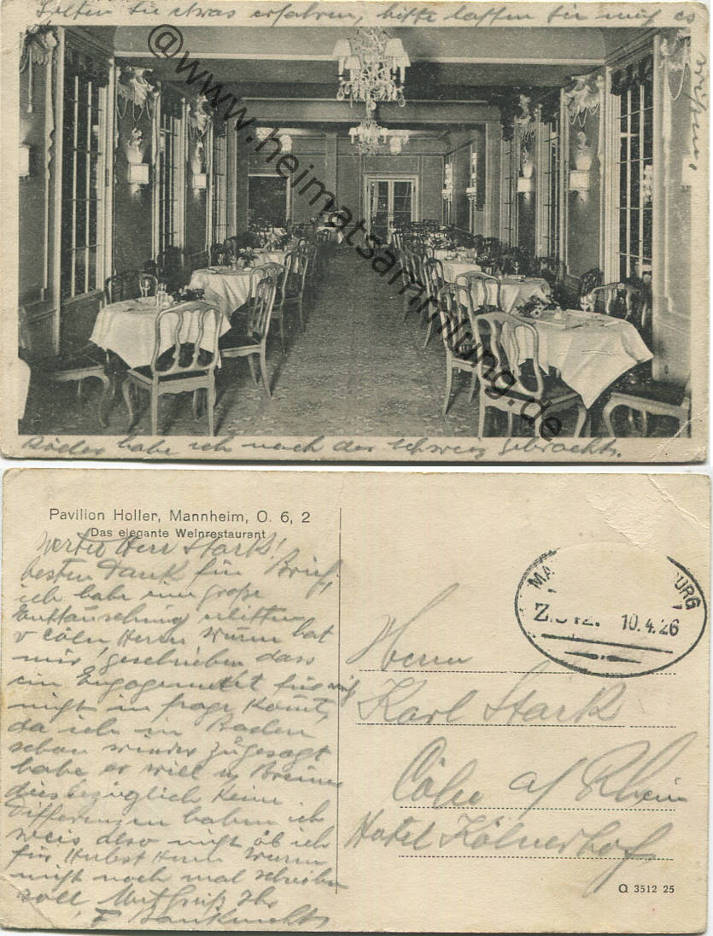 Sollten Sie etwas erfahren, bitte lassen Sie mich es
wissen.
@www.heimatsammlung.de
habe ich nach der Schweiz gebracht.
Pavilion Holler, Mannheim, O. 6, 2
Das elegante Weinrestaurant
Werter Herr Stark!
besten Dank für Brief,
ich habe eine große
Enttäuschung erlitten
v Cöln, Herr Wurm hat
mir geschrieben dass
ein Engagement für mich
nicht in frage kommt,
da ich in Baden
schon wieder zugesagt
habe er will
diesbezüglich keine
Differenzen haben ich
weis also nicht ob ich
für Herbst Herrn Wurm
nicht noch mal schreiben
soll. Mit Gruß Ihr
MA URG
Z. 10.4.26
Herrn
Karl Stark
Cöln a/ Rhein
Hotel Kölnerhof
Q 3512 25